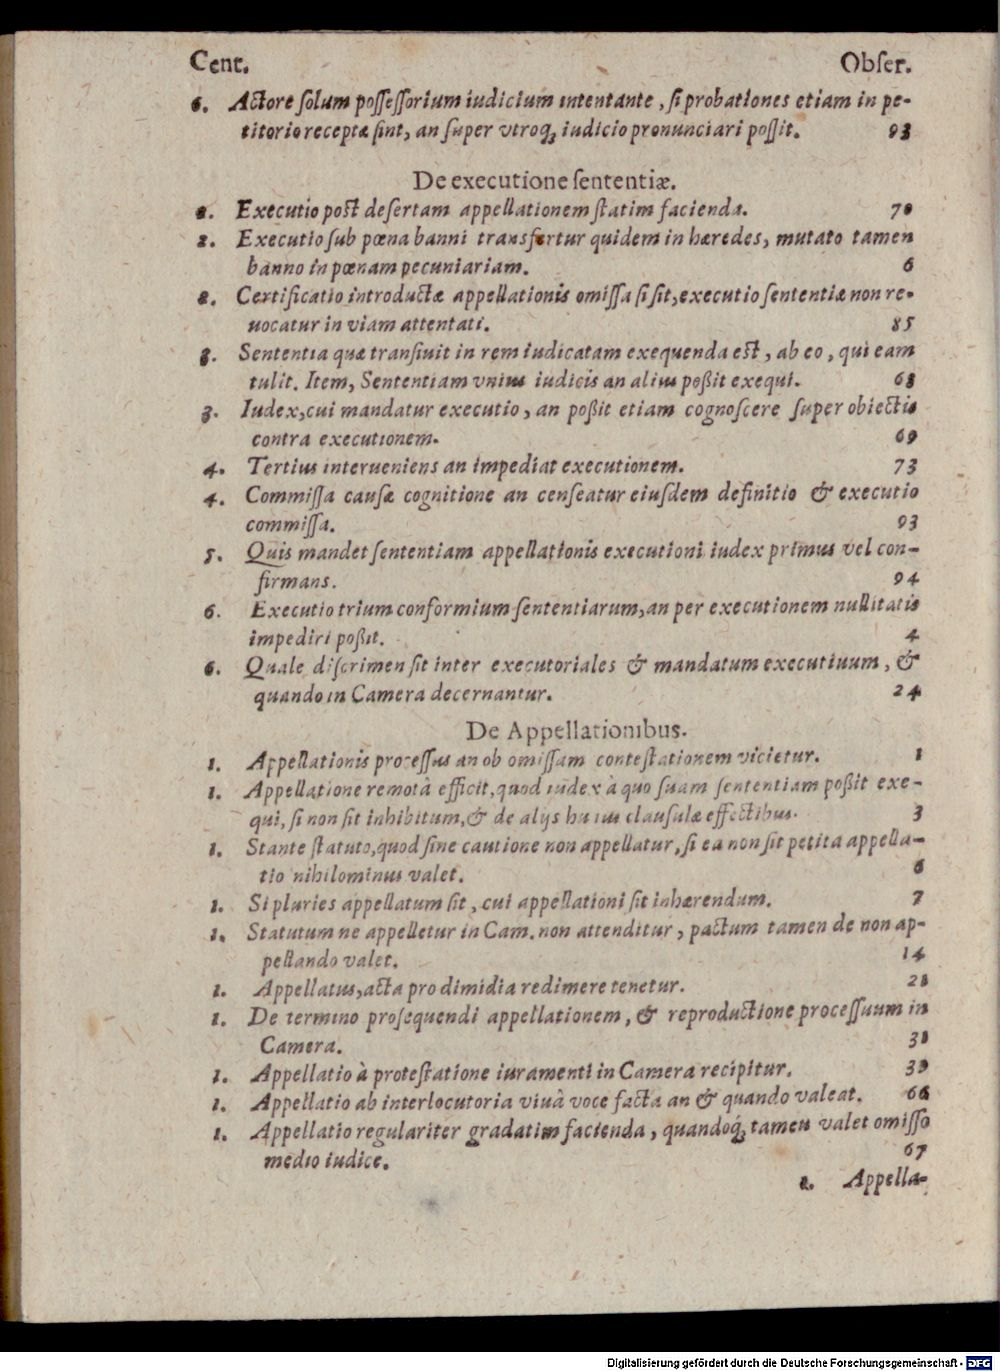 Cent. Obser.
6. Actore ſolum poſſeſſorium iudicium intentante, ſi probationes etiam in pe-
titorio receptæ ſint, an ſuper vtroq; iudicio pronunciari poſſit. 93
De executione ſententiæ.
2. Executio poſt deſertam appellationem ſtatim facienda. 70
2. Executio ſub pœna banni transfertur quidem in hæredes, mutato tamen
banno in pœnam pecuniariam. 6
2. Certificatio introductæ appellationis omiſſa ſi ſit, executio ſententiæ non re-
uocatur in viam attentati. 85
3. Sententia quæ tranſiuit in rem iudicatam exequenda eſt, ab eo, qui eam
tulit. Item, Sententiam vnius iudicis an alius poßit exequi. 68
3. Iudex, cui mandatur executio, an poßit etiam cognoſcere ſuper obiectis
contra executionem. 69
4. Tertius interueniens an impediat executionem. 73
4. Commiſſa cauſæ cognitione an cenſeatur eiuſdem definitio & executio
commiſſa. 93
5. Quis mandet ſententiam appellationis executioni iudex primus vel con-
firmans. 94
6. Executio trium conformium ſententiarum, an per executionem nullitatis
impediri poßit. 4
6. Quale diſcrimen ſit inter executoriales & mandatum executiuum, &
quando in Camera decernantur. 24
De Appellationibus.
1. Appellationis proceſſus an ob omiſſam conteſtationem vicietur. 1
1. Appellatione remotâ efficit, quod iudex à quo ſuam ſententiam poßit exe-
qui, ſi non ſit inhibitum, & de alijs huius clauſulæ effectibus. 3
1. Stante ſtatuto, quod ſine cautione non appellatur, ſi ea non ſit petita appella-
tio nihilominus valet. 6
1. Si pluries appellatum ſit, cui appellationi ſit inhærendum. 7
1. Statutum ne appelletur in Cam. non attenditur, pactum tamen de non ap-
pellando valet. 14
1. Appellatus, acta pro dimidia redimere tenetur. 21
1. De termino proſequendi appellationem, & reproductione proceſſuum in
Camera. 31
1. Appellatio à proteſtatione iuramenti in Camera recipitur. 39
1. Appellatio ab interlocutoria viuâ voce facta an & quando valeat. 66
1. Appellatio regulariter gradatim facienda, quandoq; tamen valet omiſſo
medio iudice. 67
1. Appella-
Digitalisierung gefördert durch die Deutsche Forschungsgemeinschaft - DFG